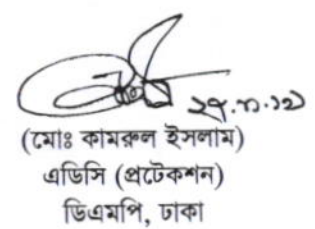 (মোঃ কামরুল ইসলাম)
এডিসি (প্রটেকশন)
ডিএমপি, ঢাকা